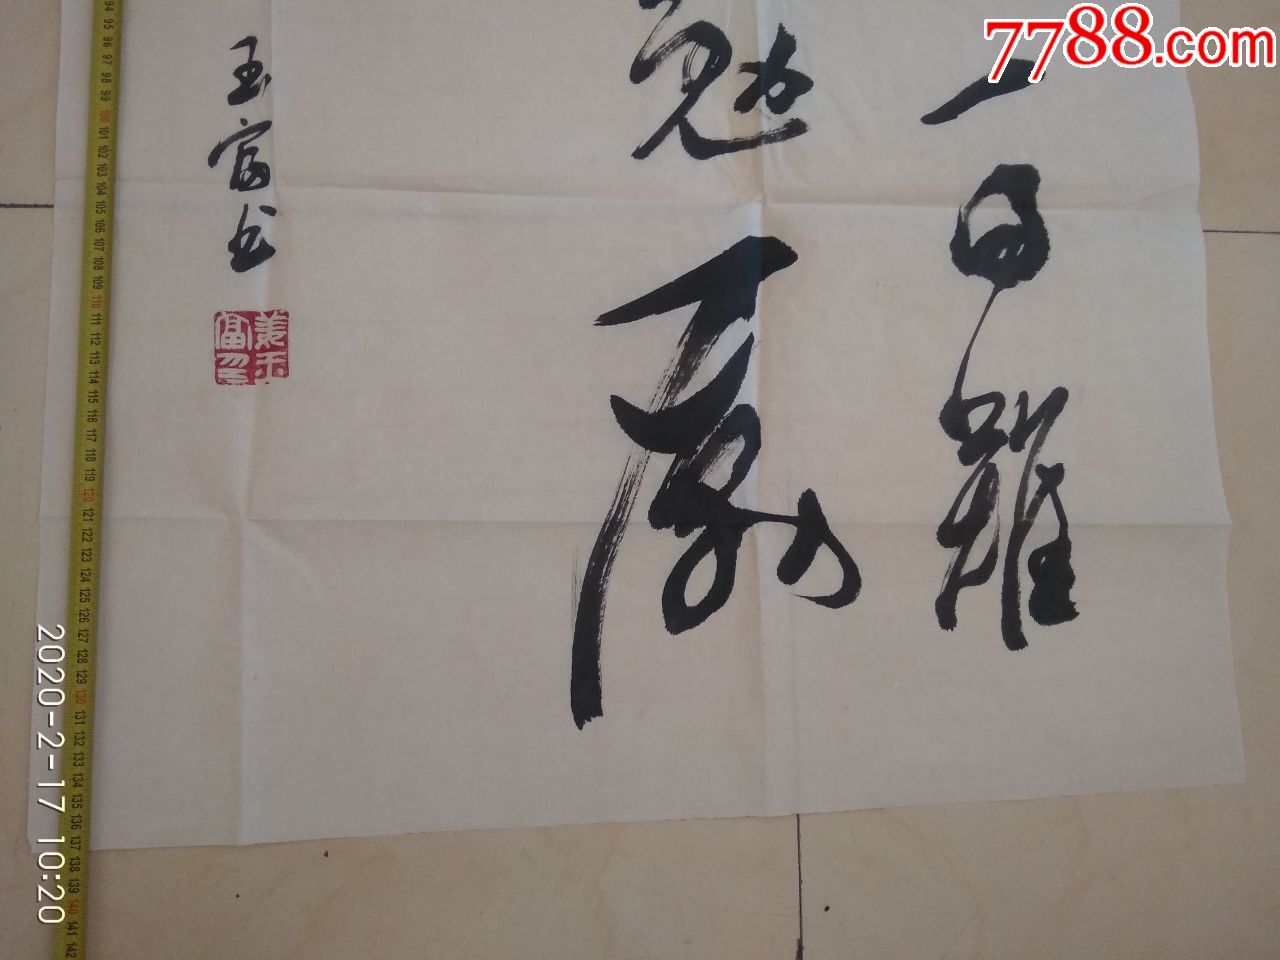 7788.com
一日難
勉勵
玉富书
姜玉富印
94 95 96 97 98 99 100 101 102 103 104 105 106 107 108 109 110 111 112 113 114 115 116 117 118 119 120 121 122 123 124 125 126 127 128 129 130 131 132 133 134 135 136 137 138 139 140 141 142
2020-2-17 10:20